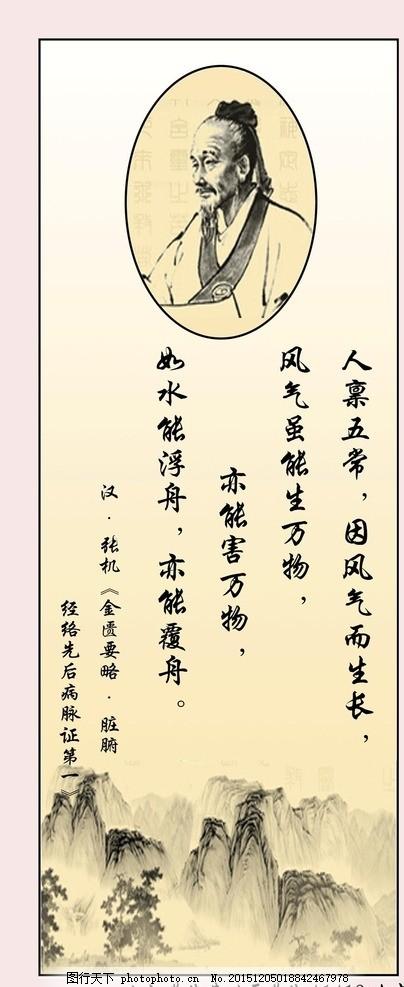 人禀五常，因风气而生长，
风气虽能生万物，
亦能害万物，
如水能浮舟，亦能覆舟。
汉·张机《金匮要略·脏腑
经络先后病脉证第一》
图行天下 photophoto.cn No.20151205018842467978